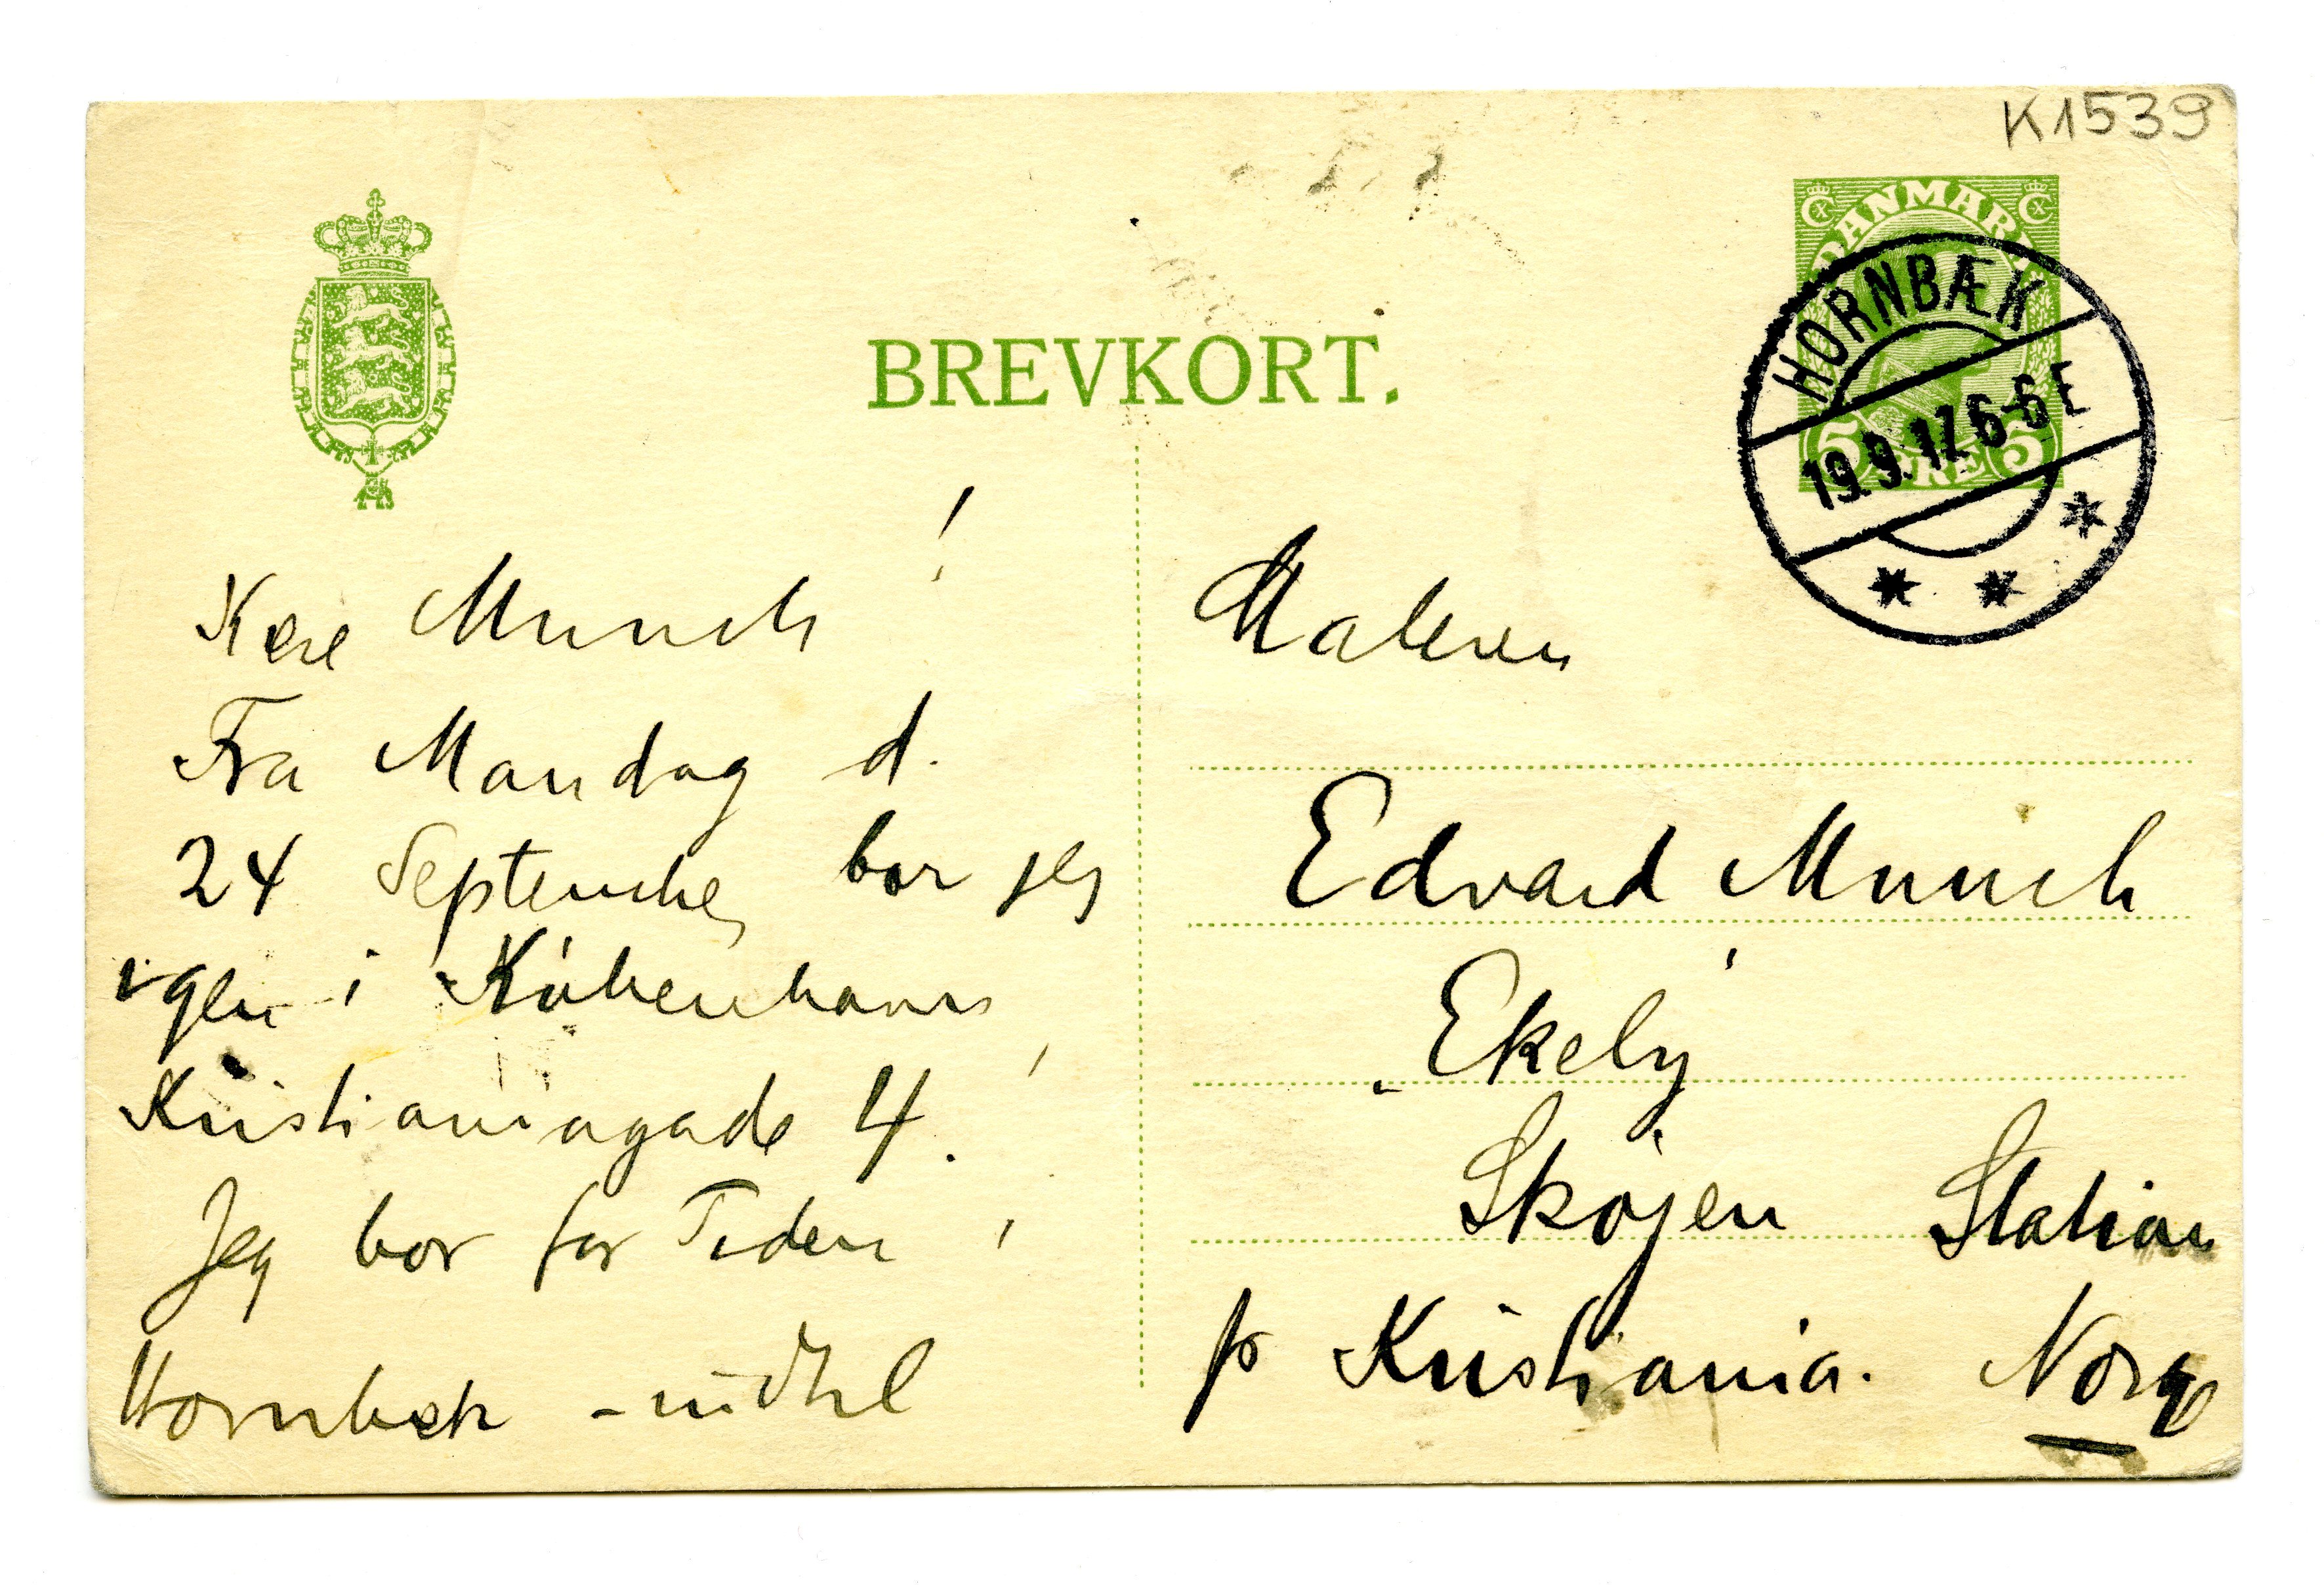 K1539
DANMARK
HORNBÆK
19.9.17. 6-6 E
5 ØRE 5
BREVKORT.
Kære Munch!
Fra Mandag d.
24 September bor jeg
igen i København,
Kristianiagade 4.
Jeg bor for Tiden i
Hornbæk -
Maleren
Edvard Munch
"Ekely"
Skøjen Station
pr Kristiania. Norge